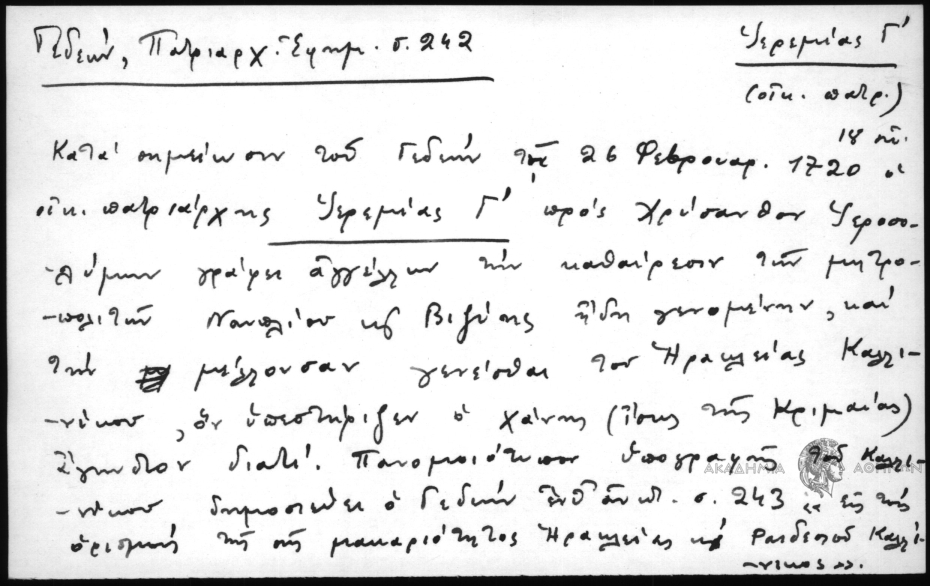 Γεδεών, Πατριαρχ. Ἐφημ. σ. 242
Ἱερεμίας Γ'
(οἰκ. πατρ.)
18 αἰ.
Κατά σημείωσιν τοῦ Γεδεών τῇ 26 Φεβρουαρ. 1720 ὁ
οἰκ. πατριάρχης Ἱερεμίας Γ' πρός Χρύσανθον Ἱεροσο-
-λύμων γράφει ἀγγέλλων τήν καθαίρεσιν τῶν μητρο-
-πολιτῶν Ναυπλίου καί Βιζύης ἤδη γενομένην, καί
τήν μέλλουσαν γενέσθαι τοῦ Ἡρακλείας Καλλι-
-νίκου, ὅν ὑπεστήριζεν ὁ χάνης (ἴσως τῆς Κριμαίας)
ἄγνωστον διατί. Πανομοιότυπον ὑπογραφῆς τοῦ Καλλι-
-νίκου δημοσιεύει ὁ Γεδεών ἔνθ' ἀνωτ. σ. 243 «εἰς τούς
ὁρισμούς τῆς σῆς μακαριότητος Ἡρακλείας κ Ραιδεστοῦ Καλλί-
-νικος».
ΑΚΑΔΗΜΙΑ ΑΘΗΝΩΝ